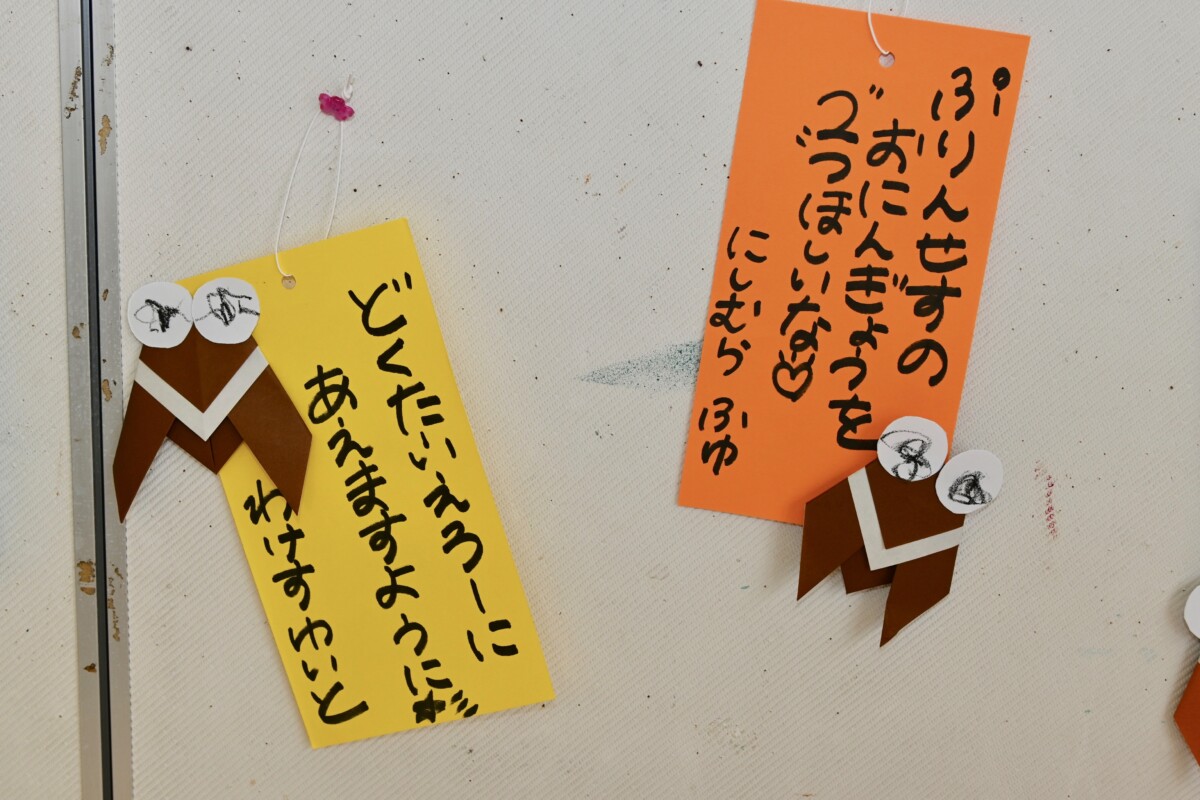 ぷりんせすの
おにんぎょうを
〝2〟つほしいな♡
にしむら ふゆ
どくたいえろーに
あえますように★
わけすゆいと